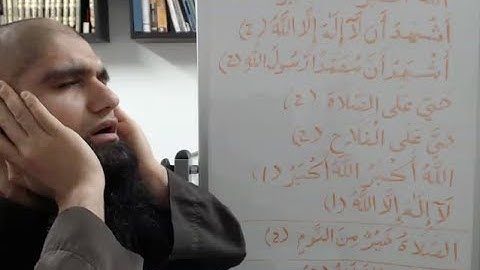 أَشْهَدُ أَن لَّآ إِلٰهَ إِلَّا اللَّهُ (2)
أَشْهَدُ أَنَّ مُحَمَّدًا رَسُولُ اللَّهِ (2)
حَيَّ عَلَى الصَّلَاةِ (2)
حَيَّ عَلَى الْفَلَاحِ (2)
اللَّهُ أَكْبَرُ اللَّهُ أَكْبَرُ (1)
لَآ إِلٰهَ إِلَّا اللَّهُ (1)
الصَّلَاةُ خَيْرٌ مِنَ النَّوْمِ (2)